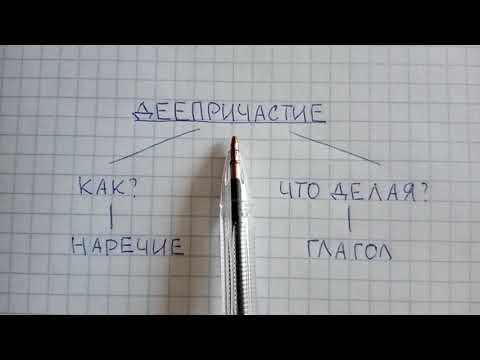 ДЕЕПРИЧАСТИЕ
КАК? ЧТО ДЕЛАЯ?
НАРЕЧИЕ ГЛАГОЛ